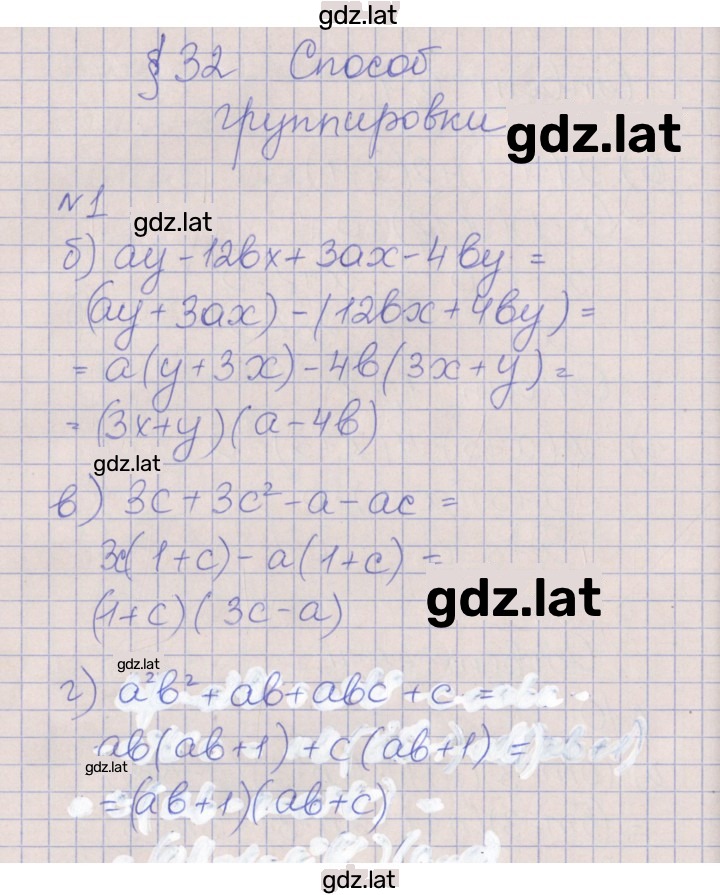 gdz.lat
§ 32 Способ
группировки
gdz.lat
№ 1
gdz.lat
б) ay - 12bx + 3ax - 4by =
(ay + 3ax) - (12bx + 4by) =
= a(y + 3x) - 4b(3x + y) =
= (3x + y)(a - 4b)
gdz.lat
в) 3c + 3c² - a - ac =
3c(1 + c) - a(1 + c) =
gdz.lat
(1 + c)(3c - a)
gdz.lat
г) a²b² + ab + abc + c =
ab(ab + 1) + c(ab + 1) =
gdz.lat
= (ab + 1)(ab + c)
gdz.lat